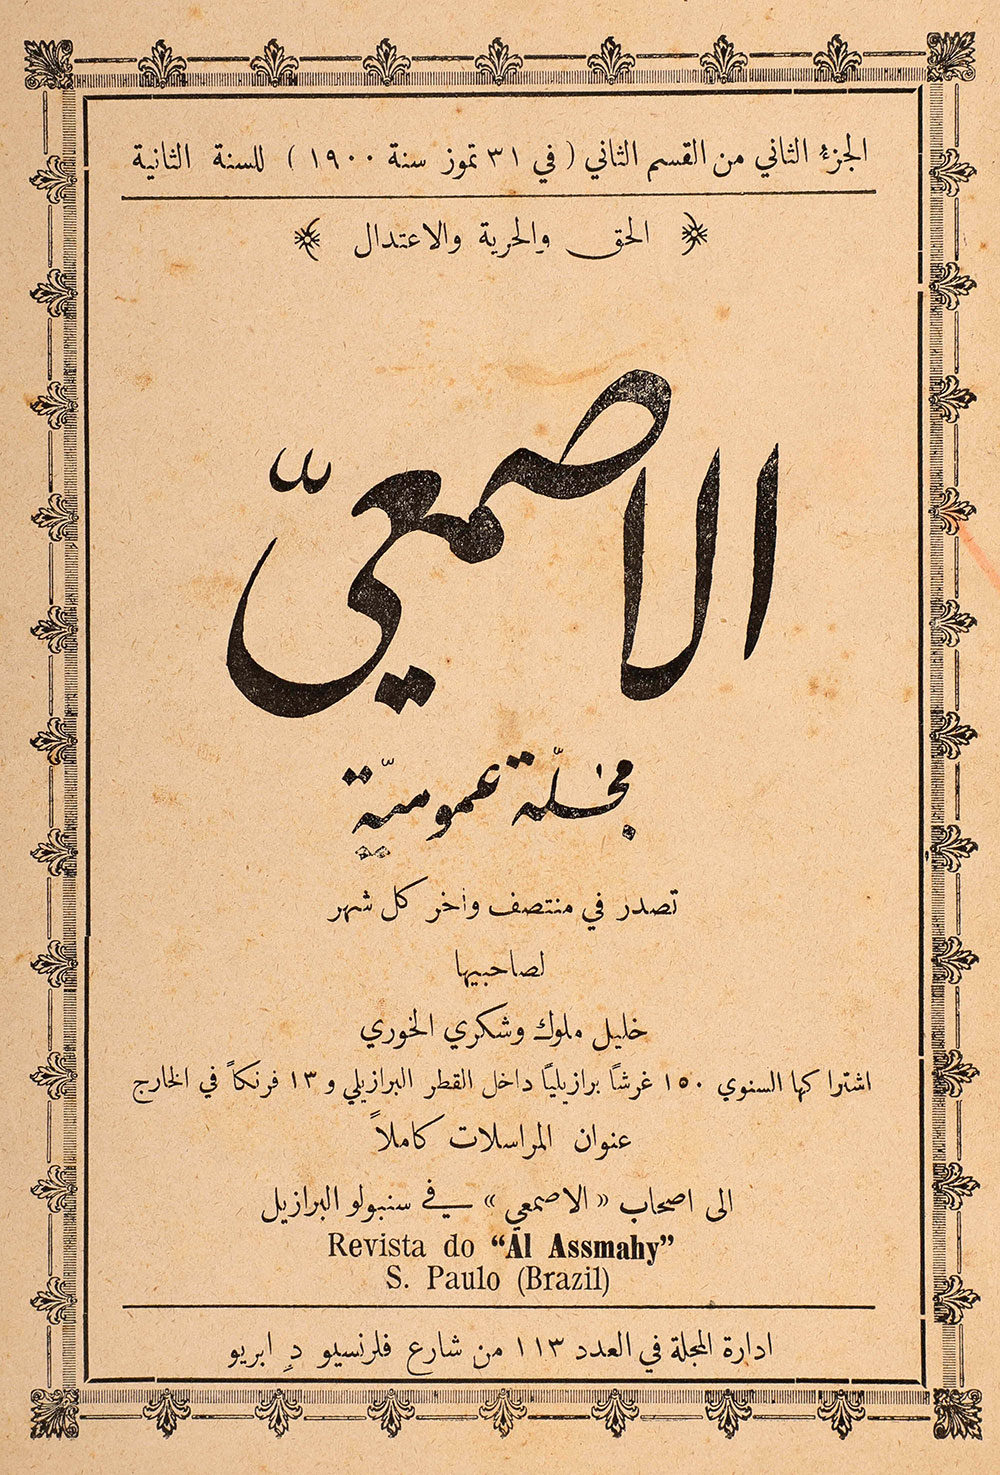 الجزء الثاني من القسم الثاني ( في ٣١ تموز سنة ١٩٠٠ ) للسنة الثانية
الحق والحرية والاعتدال
الاصمعيّ
مجلّة عموميّة
تصدر في منتصف وآخر كل شهر
لصاحبيها
خليل ملوك وشكري الخوري
اشتراكها السنوي ١٥٠ غرشاً برازيلياً داخل القطر البرازيلي و ١٣ فرنكاً في الخارج
عنوان المراسلات كاملاً
الى اصحاب « الاصمعي » في سنبولو البرازيل
Revista do “Al Assmahy”
S. Paulo (Brazil)
ادارة المجلة في العدد ١١٣ من شارع فلرنسيو دِ ابريو